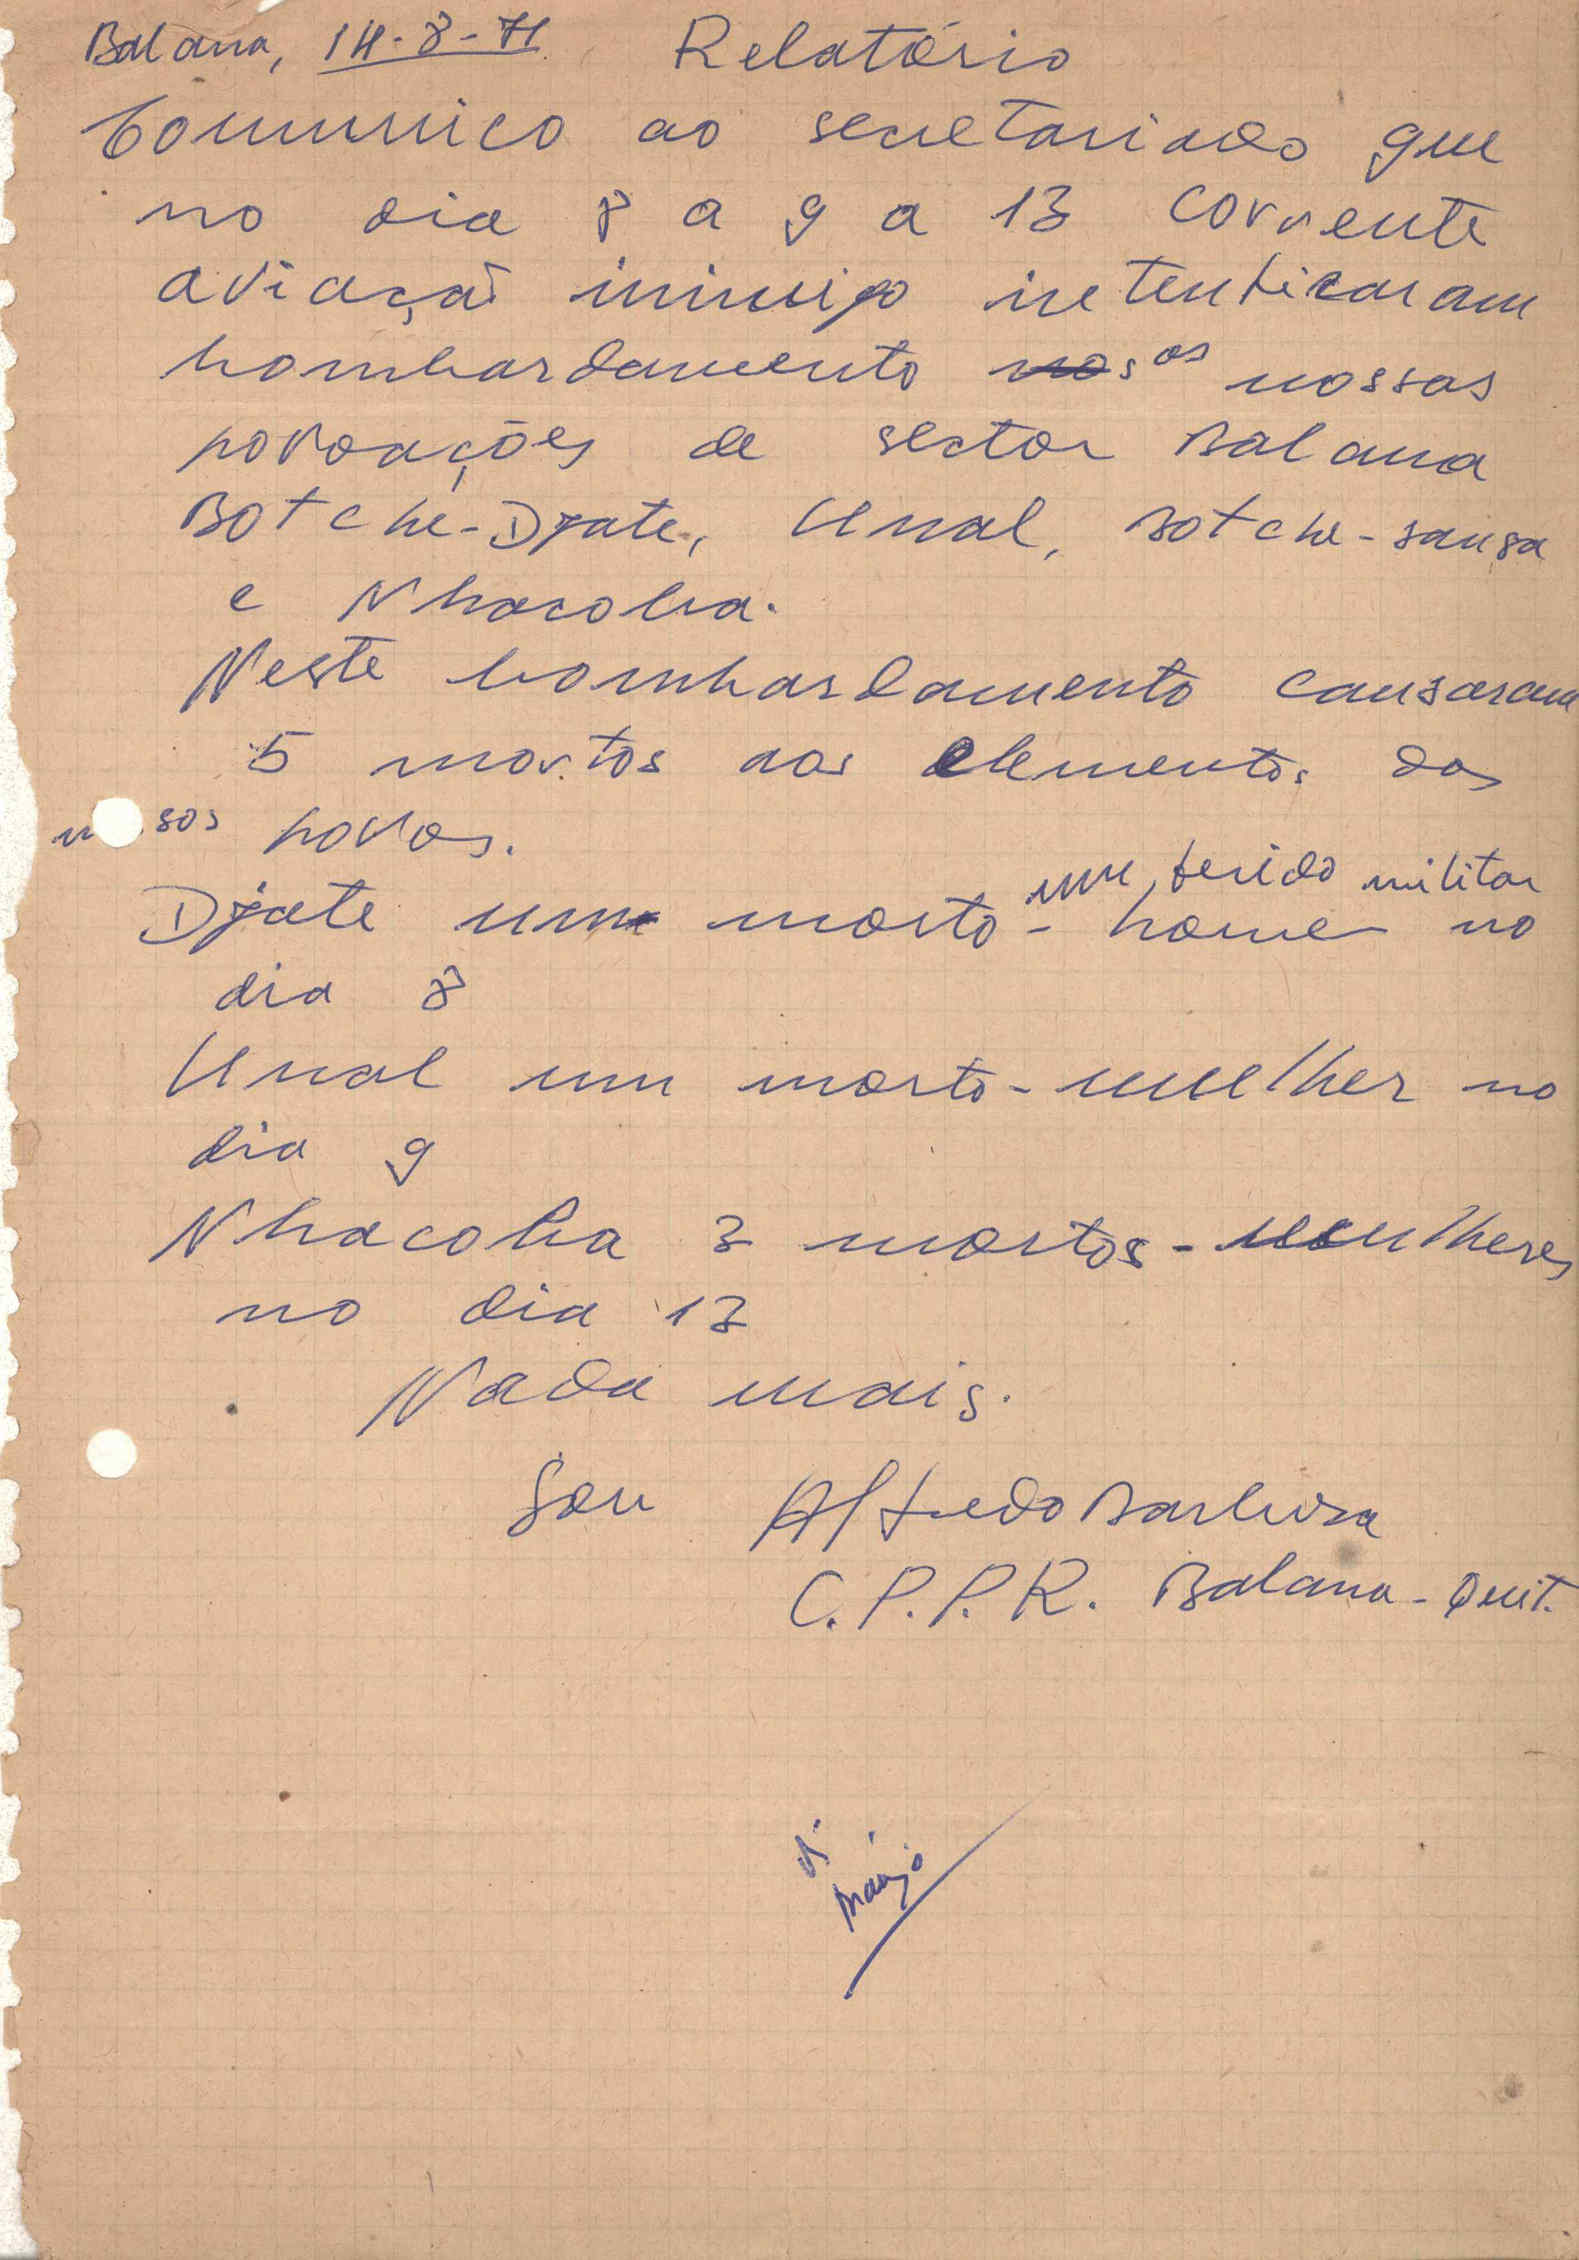 Balana, 14-8-71. Relatório
Comunico ao secretariado que
no dia 8 a 9 a 13 corrente
aviação inimigo intenticaram
bombardamento nos as nossas
povoações de sector Balana
Botche-Djate, Unal, Botche-sansa
e Nhacoba.
Neste bombardamento causaram
5 mortos aos elementos dos
nossos povos.
um ferido militar
Djate um morto - home no
dia 8
Unal um morto - mulher no
dia 9
Nhacoba 3 mortos - mulheres
no dia 13
Nada mais.
Sou Alfredo Barbosa
C.P.P.R. Balana - Quit.
Araújo